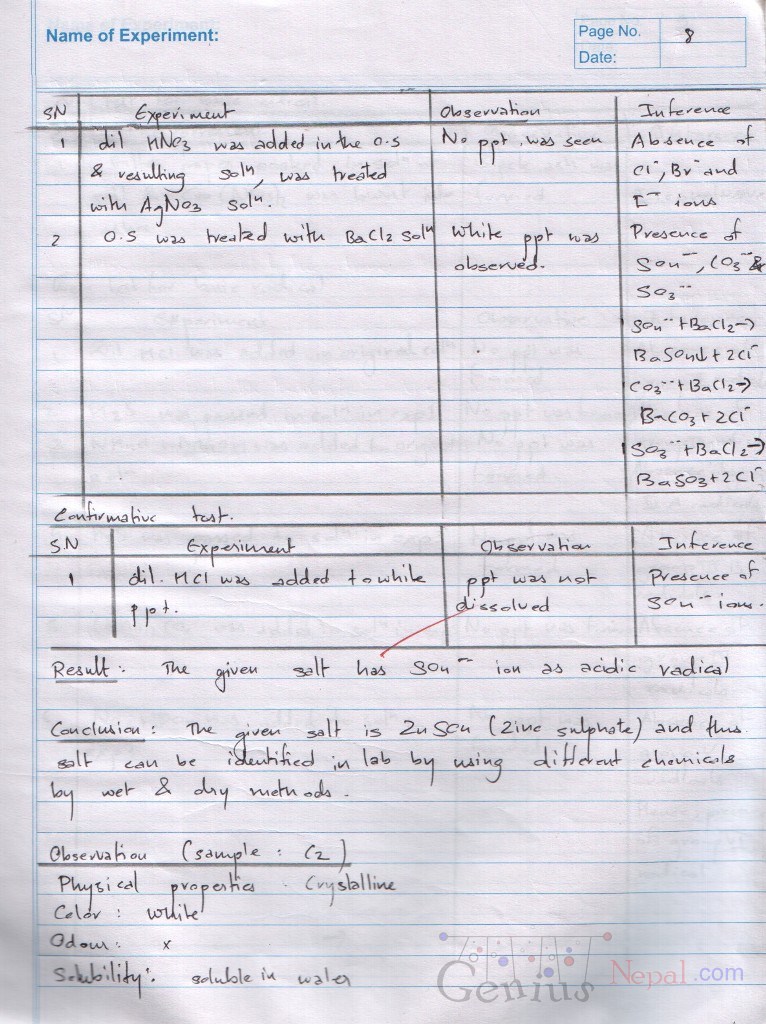 Name of Experiment:
Page No. 8
Date:
SN Experiment Observation Inference
1 dil HNO3 was added in the O.S No ppt. was seen Absence of
& resulting solⁿ, was treated Cl⁻, Br⁻ and
with AgNO3 solⁿ. I⁻ ions
2 O.S was treated with BaCl2 solⁿ White ppt was Presence of
observed. SO4⁻⁻, CO3⁻⁻ &
SO3⁻⁻
SO4⁻⁻ + BaCl2 →
BaSO4↓ + 2Cl⁻
CO3⁻⁻ + BaCl2 →
BaCO3 + 2Cl⁻
SO3⁻⁻ + BaCl2 →
BaSO3 + 2Cl⁻
Confirmative test.
S.N Experiment Observation Inference
1 dil. HCl was added to white ppt was not Presence of
ppt. dissolved SO4⁻⁻ ions.
Result: The given salt has SO4⁻⁻ ion as acidic radical
Conclusion: The given salt is ZnSO4 (Zinc sulphate) and thus
salt can be identified in lab by using different chemicals
by wet & dry methods.
Observation (sample: C2)
Physical properties - Crystalline
Color: white
Odour: x
Solubility: soluble in water
Genius Nepal.com